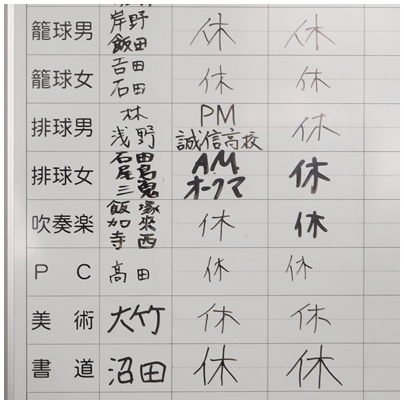 籠球男 岸野 休 休
飯田
籠球女 吉田 休 休
石田
排球男 林 PM 休
浅野 誠信高校
排球女 石田 AM 休
尾島 オークマ
三鬼
吹奏楽 飯塚 休 休
加來
寺西
PC 高田 休 休
美術 大竹 休 休
書道 沼田 休 休